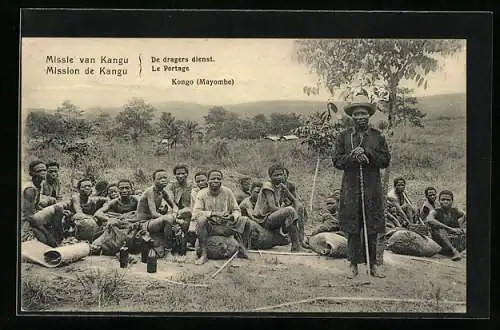 Missie van Kangu
Mission de Kangu
De dragers dienst.
Le Portage
Kongo (Mayombe)